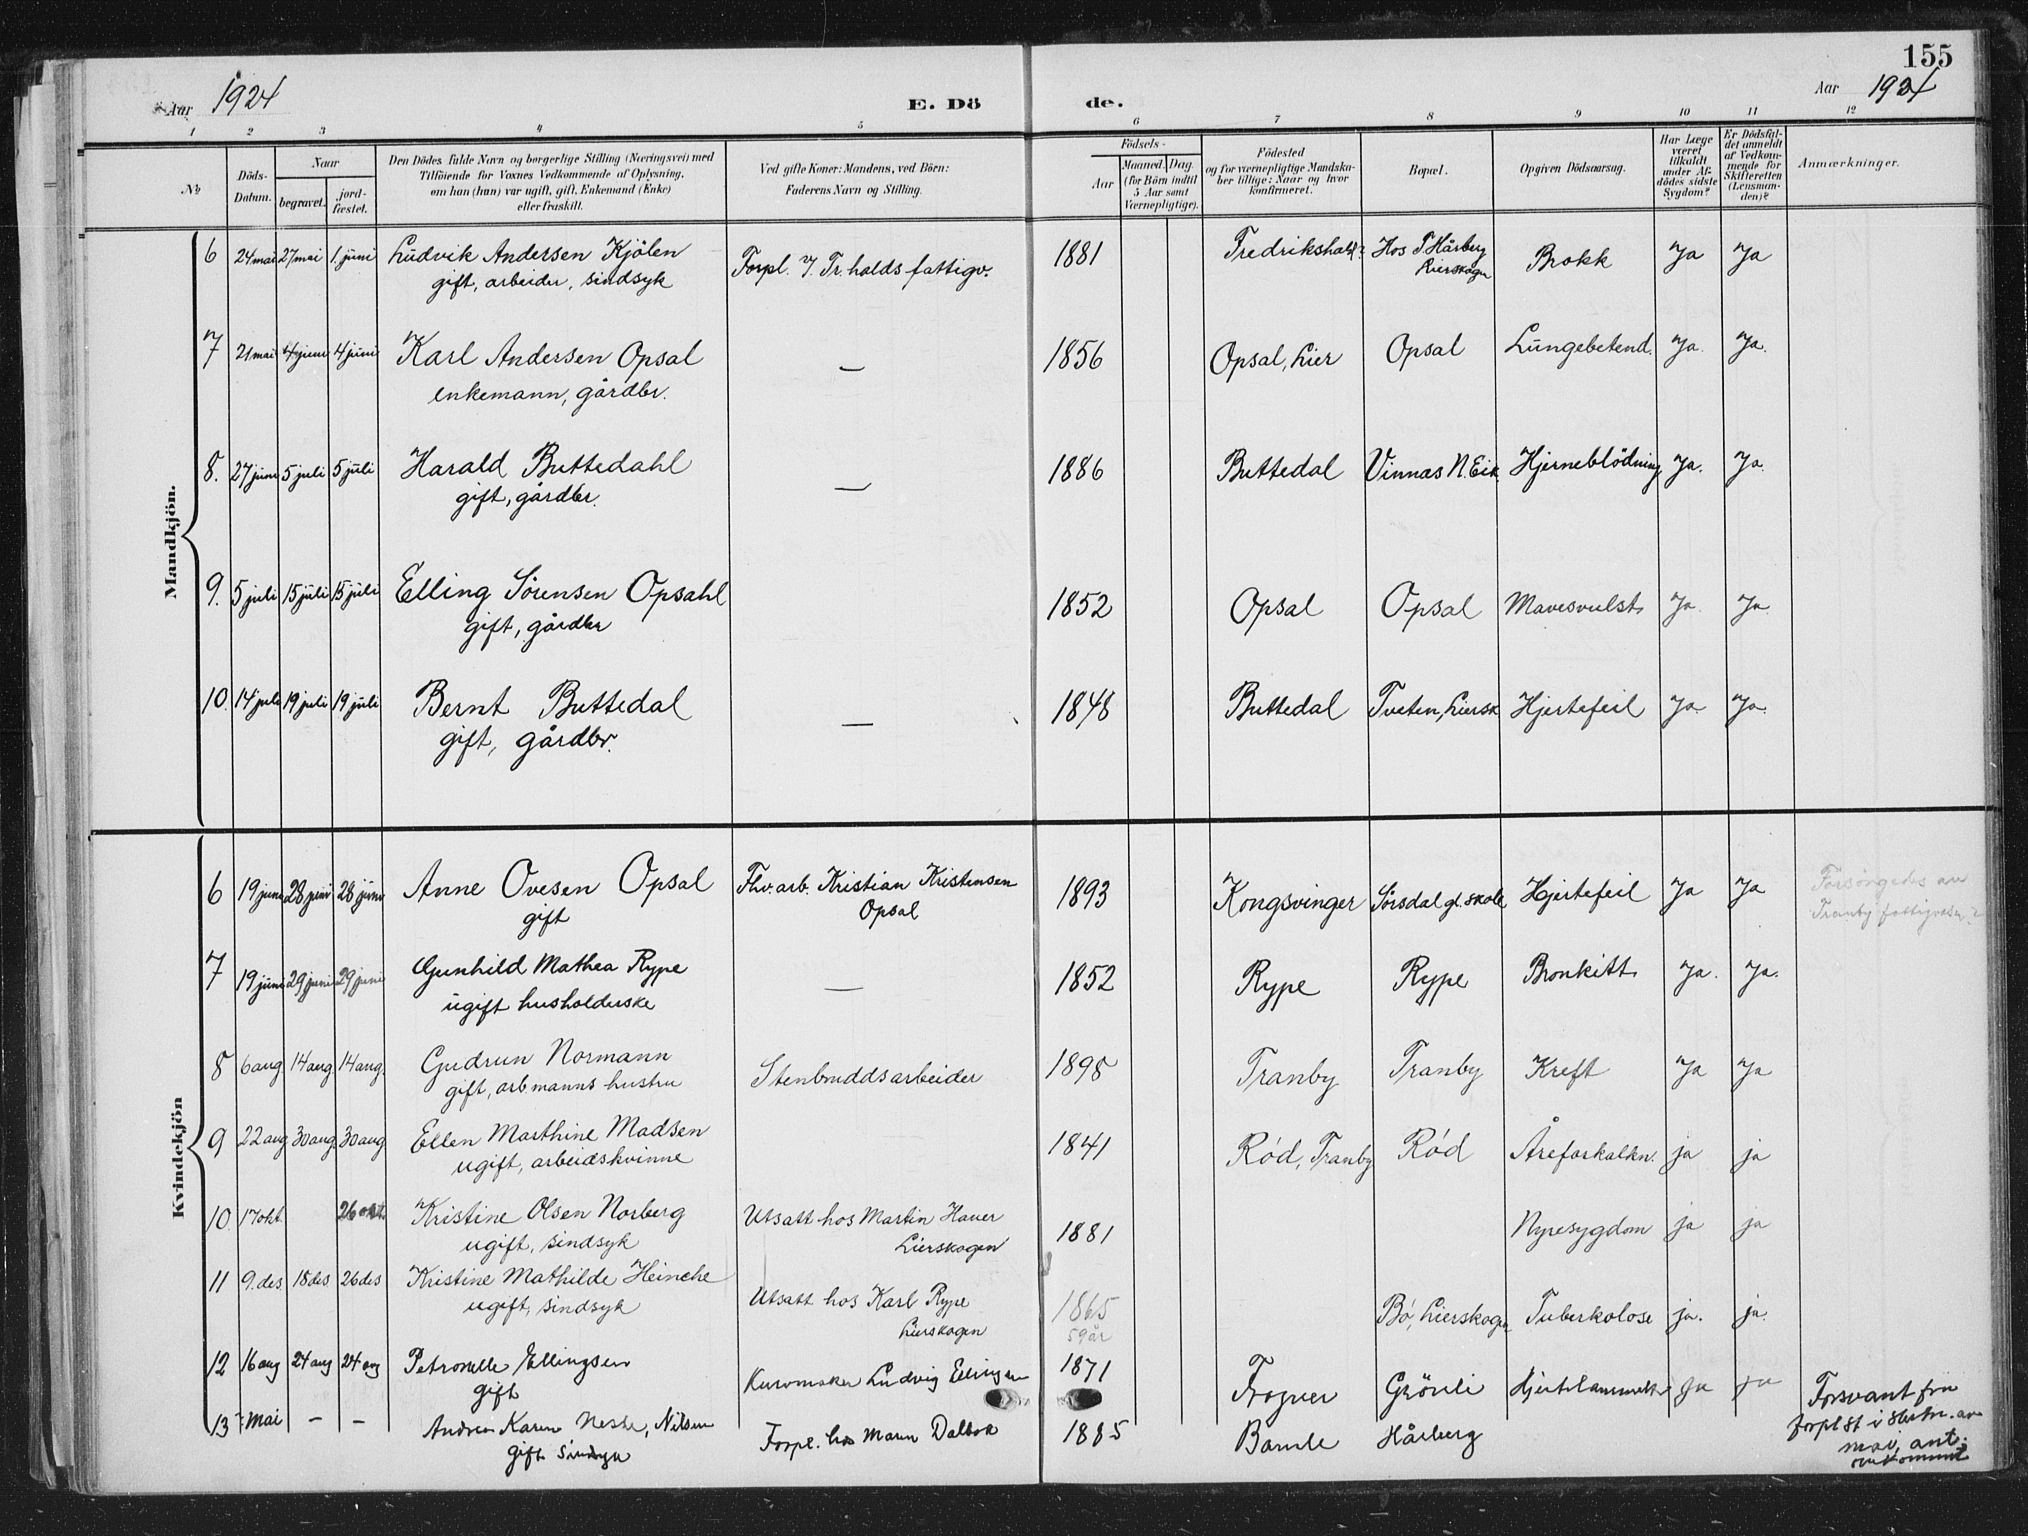 155
Aar 1924
E. Dö
de.
Aar 1924
1 2 3 4 5 6 7 8 9 10 11 12
No
Döds-Datum.
Naar
begravet.
jord-fæstet.
Den Dödes fulde Navn og borgerlige Stilling (Næringsvei) med
Tilföiende for Voxnes Vedkommende af Oplysning,
om han (hun) var ugift, gift, Enkemand (Enke)
eller fraskilt.
Ved gifte Koner: Mandens, ved Börn:
Faderens Navn og Stilling.
Födsels-
Aar
Maaned. Dag.
(for Börn indtil
5 Aar samt
Værnepligtige).
Födested
og for værnepligtige Mandska-
ber tillige: Naar og hvor
konfirmeret.
Bopæl.
Opgiven Dödsaarsag.
Har Læge
været
tilkaldt
under Af-
dödes sidste
Sygdom?
Er Dödsfal-
det anmeldt
af Vedkom-
mende for
Skifteretten
(Lensman-
den)?
Anmærkninger.
Mandkjön.
6 24 mai 27 mai 1. juni Ludvik Andersen Kjölen Forpl. f. Fr.halds fattigv. 1881 Fredrikshald? Hos T Hårberg Brokk Ja Ja
gift, arbeider, sindsyk Lierskogn
7 21 mai 4 juni 4 juni Karl Andersen Opsal — 1856 Opsal, Lier Opsal Lungebetend. Ja. Ja.
enkemann, gårdbr.
8. 27 juni 5 juli 5 juli Harald Buttedahl — 1886 Buttedal Vinnas N. Eik. Hjerneblödning Ja. Ja.
gift, gårdbr.
9. 5 juli 15 juli 15 juli Elling Sörensen Opsahl 1852 Opsal Opsal Mavesvulst Ja. Ja
gift, gårdbr
10. 14 juli 19 juli 19 juli Bernt Buttedal — 1848 Buttedal Tveten, Liersk Hjertefeil Ja Ja.
gift, gårdbr.
Kvindekjön
6 19 juni 28 juni 28 juni Anne Ovesen Opsal Fhv. arb. Kristian Kristensen 1893 Kongsvinger Sörsdal gl. skole Hjertefeil Ja Ja Forsörgedes av
gift Opsal Tranby fattigvesen?
7 19 juni 29 juni 29 juni Gunhild Mathea Rype — 1852 Rype Rype Bronkitt Ja. Ja.
ugift husholderske
8 6 aug 14 aug 14 aug. Gudrun Normann Stenbruddsarbeider 1898 Tranby Tranby Kreft Ja Ja
gift, arb.manns hustru
9 22 aug 30 aug 30 aug Ellen Marthine Madsen 1841 Röd, Tranby Röd Åreforkalkn. ja ja
ugift, arbeidskvinne
10. 17 okt. 26 okt. Kristine Olsen Norberg Utsatt hos Martin Hauer 1881 Nyresygdom ja ja
ugift, sindsyk Lierskogen
11 9. des 18 des 26 des Kristine Mathilde Heinche
ugift, sindsyk Utsatt hos Karl Rype 1865 Bö, Lierskogn Tuberkolose ja. ja.
Lierskogen 59 år
12 16 aug 24 aug 24 aug Petronelle Ellingsen Kurvmaker Ludvig Ellingsen 1871 Frogner Grönli ja ja Forsvant fra
gift
13 ? Mai — — Andrea Karen Neste, Nilsen Forpl. hos Maren Dalbok 1885 Bamle Hårberg forpl st i
gift Sindsyk mai, ant.
omkommet